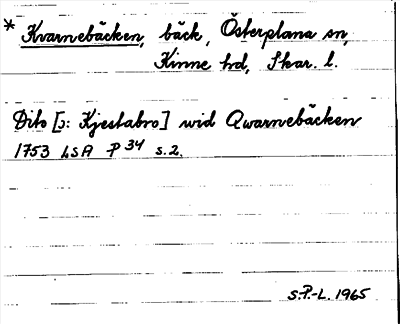 * Kvarnebäcken, bäck, Österplana sn,
Kinne hd, Skar. l.
Dito [ɔ: Kjestabro] wid Qwarnebäcken
1753 LSA P 34 s. 2.
S.P.-L. 1965